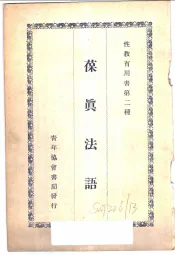 性教育用書第二種
葆真法語
青年協會書局發行